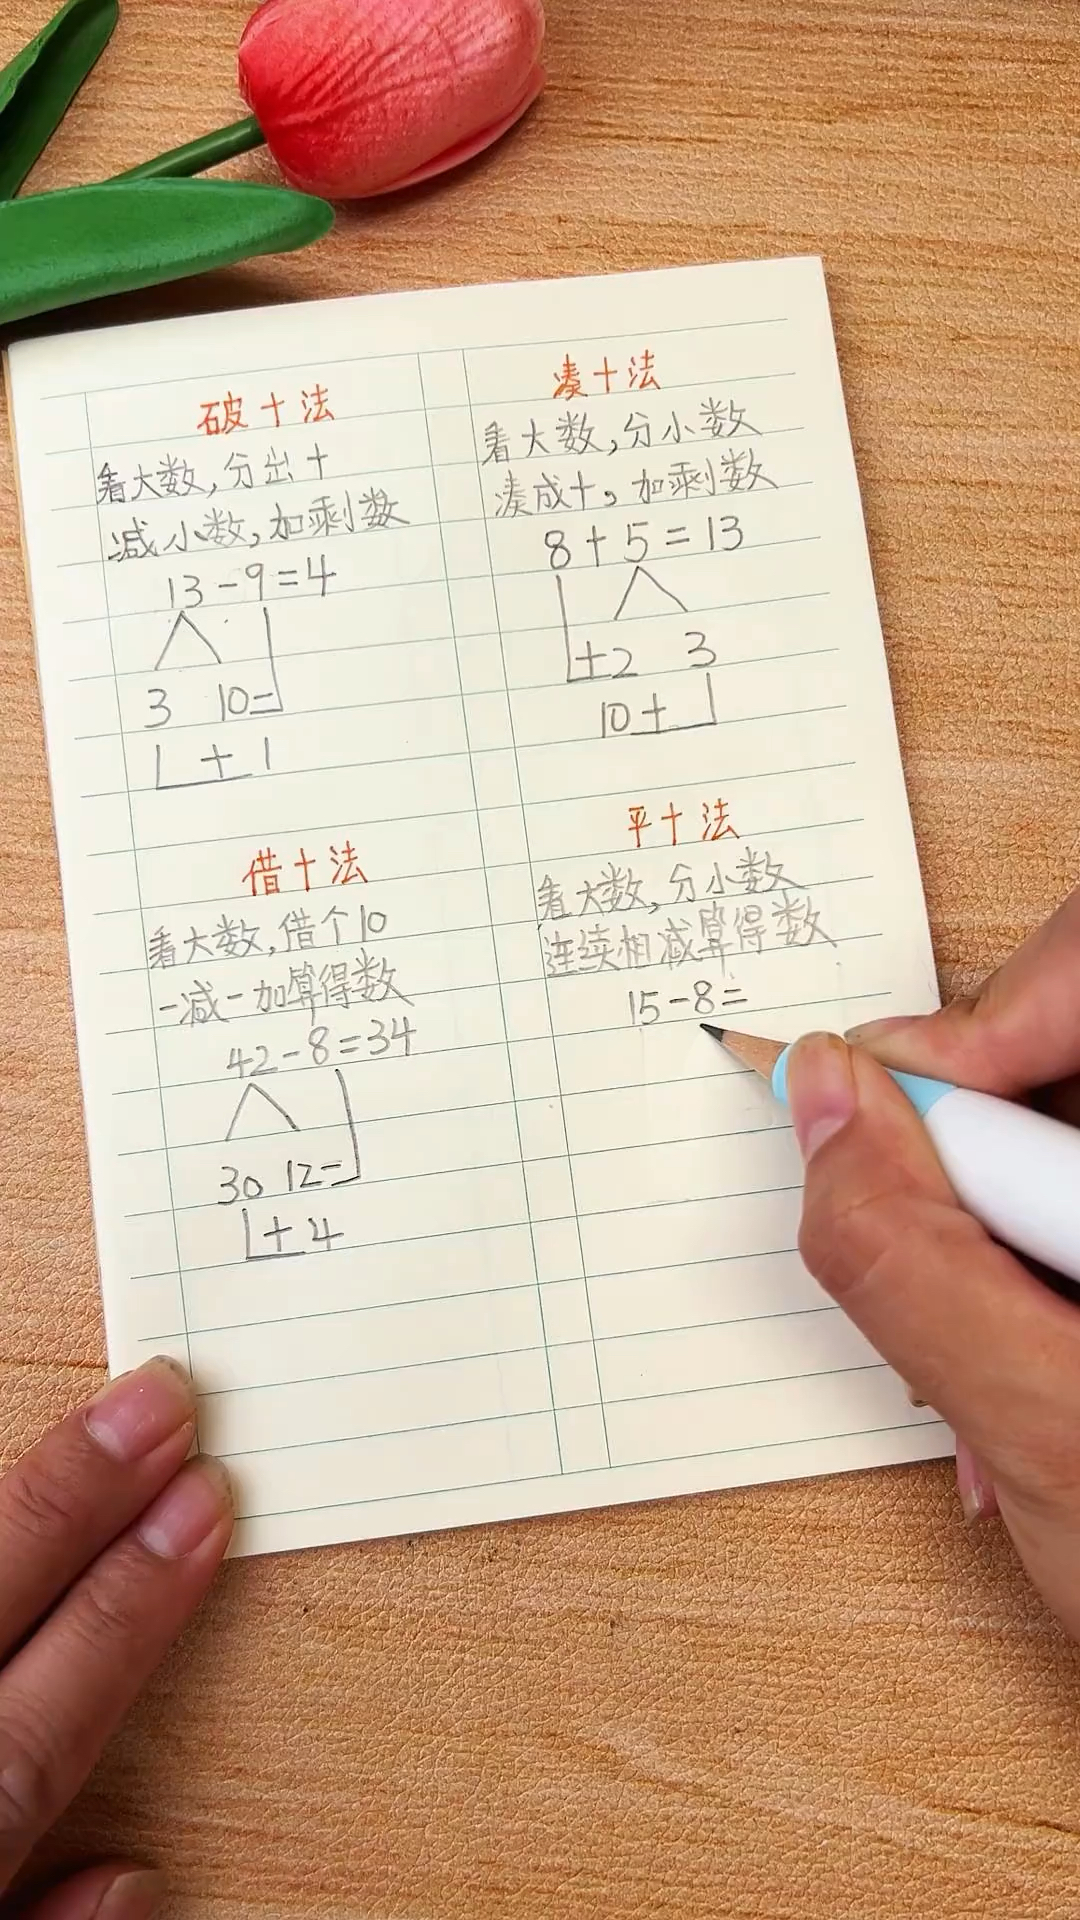 破十法
看大数,分出十
减小数,加剩数
13-9=4
3 10-
+1
凑十法
看大数,分小数
凑成十,加剩数
8+5=13
+2 3
10+
借十法
看大数,借个10
一减一加算得数
42-8=34
30 12-
+4
平十法
看大数,分小数
连续相减算得数
15-8=